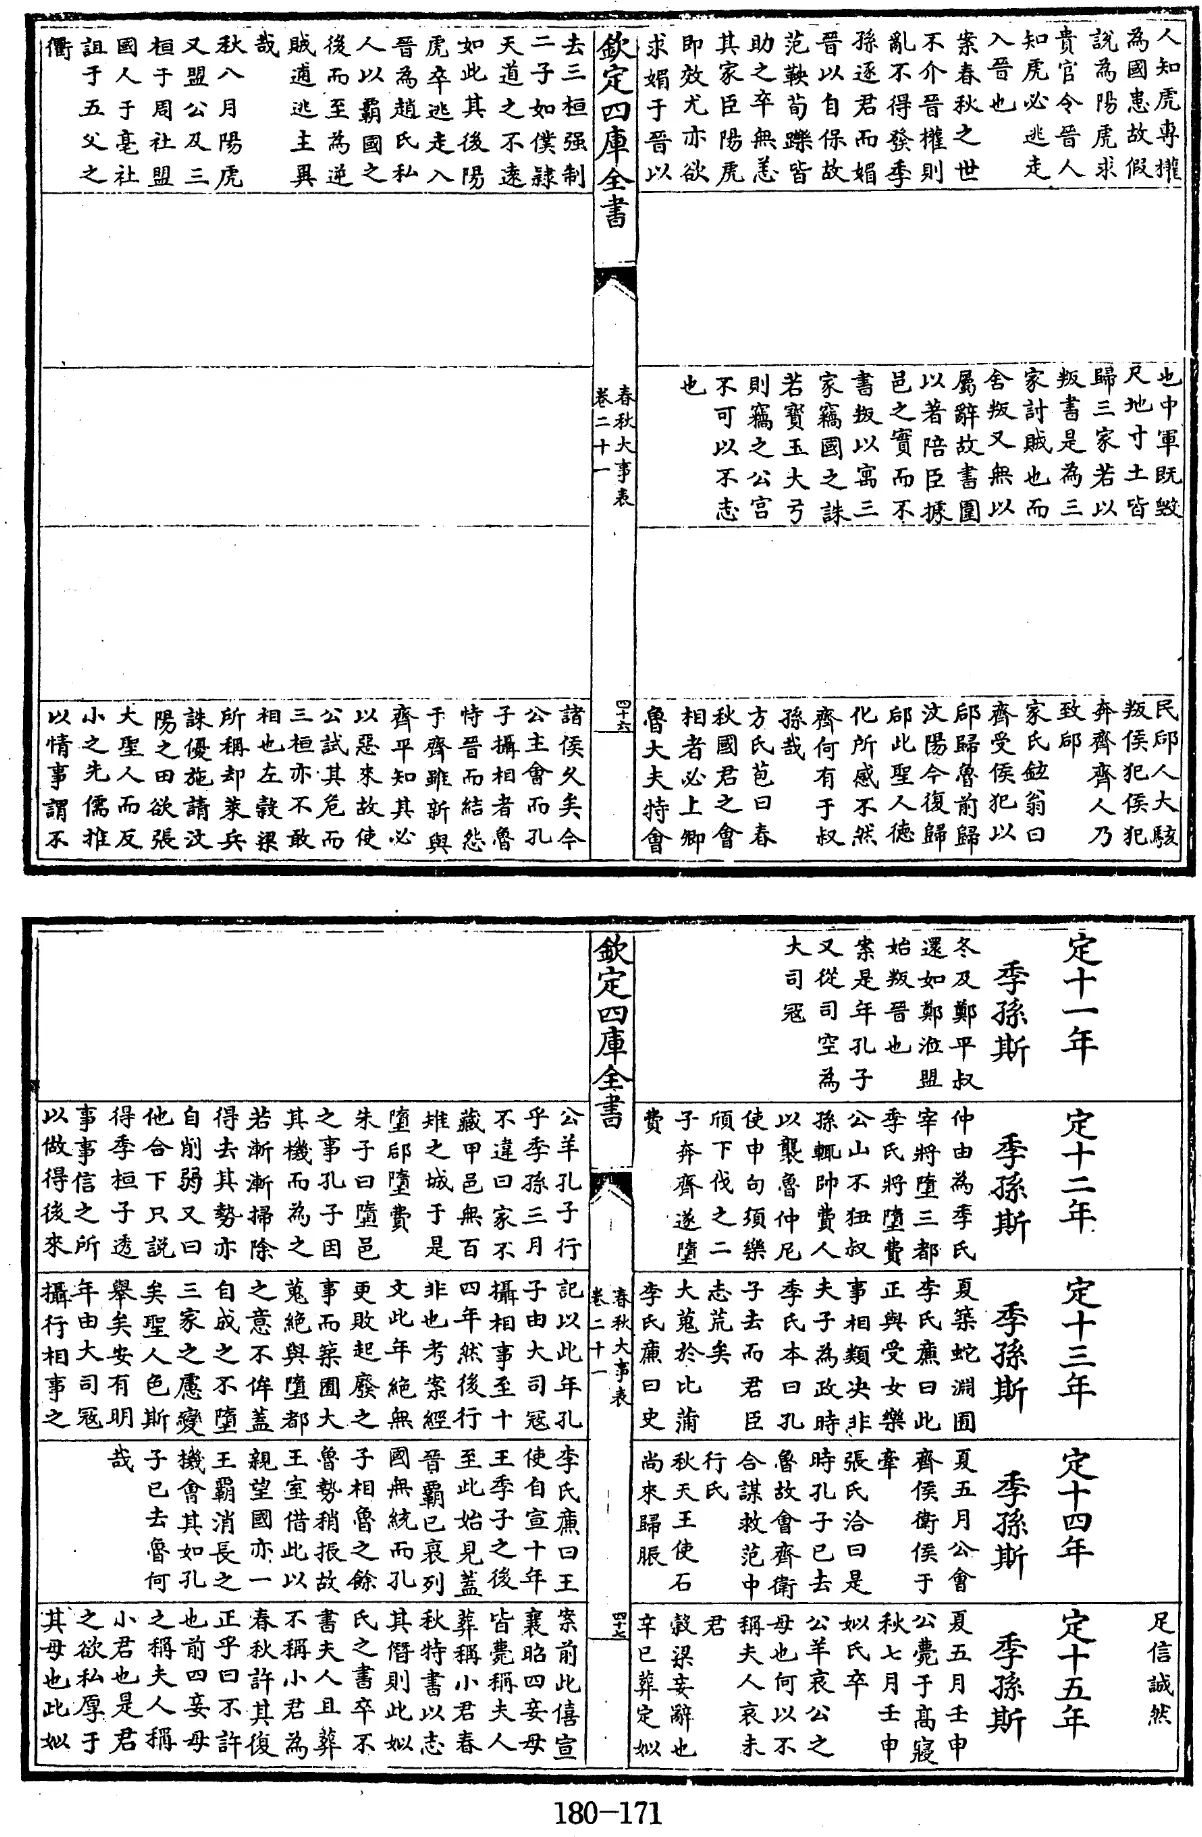 人知虎專權
為國患故假
說為陽虎求
貴官令晉人
知虎必逃走
入晉也
案春秋之世
不介晉權則
亂不得發季
孫逐君而媚
晉以自保故
范鞅荀躒皆
助之卒無恙
其家臣陽虎
即效尤亦欲
求媚于晉以
去三桓强制
二子如僕隸
天道之不遠
如此其後陽
虎卒逃走入
晉為趙氏私
人以霸國之
後而至為逆
賊逋逃主異
哉
秋八月陽虎
又盟公及三
桓于周社盟
國人于亳社
詛于五父之
衢
也中軍既毀
尺地寸土皆
歸三家若以
叛書是為三
家討賊也而
舍叛又無以
屬辭故書圍
以著陪臣據
邑之實而不
書叛以寓三
家竊國之誅
若寶玉大弓
則竊之公宮
不可以不志
也
民郈人大駭
叛侯犯侯犯
奔齊齊人乃
致郈
家氏鉉翁曰
齊受侯犯以
郈歸魯前歸
汶陽今復歸
郈此聖人德
化所感不然
齊何有于叔
孫哉
方氏苞曰春
秋國君之會
相者必上卿
魯大夫特會
諸侯久矣今
公主會而孔
子攝相者魯
恃晉而結怨
于齊雖新與
齊平知其必
以惡來故使
公試其危而
三桓亦不敢
相也左穀梁
所稱却萊兵
誅優施請汶
陽之田欲張
大聖人而反
小之先儒推
以情事謂不
欽定四庫全書
春秋大事表
卷二十一
四十六
足信誠然
定十一年
季孫斯
冬及鄭平叔
還如鄭涖盟
始叛晉也
案是年孔子
又從司空為
大司寇
定十二年
季孫斯
仲由為季氏
宰將墮三都
季氏將墮費
公山不狃叔
孫輒帥費人
以襲魯仲尼
使申句須樂
頎下伐之二
子奔齊遂墮
費
公羊孔子行
乎季孫三月
不違曰家不
藏甲邑無百
雉之城于是
墮郈墮費
朱子曰墮邑
之事孔子因
其機而為之
若漸漸掃除
得去其勢亦
自削弱又曰
他合下只說
得季桓子透
事事信之所
以做得後來
定十三年
季孫斯
夏築蛇淵囿
李氏廉曰此
正與受女樂
事相類决非
夫子為政時
季氏本曰孔
子去而君臣
志荒矣
大蒐於比蒲
李氏廉曰史
記以此年孔
子由大司寇
攝相事至十
四年然後行
非也考案經
文此年絶無
更敗起廢之
事而築囿大
蒐絶與墮都
之意不侔蓋
自成之不墮
三家之慮變
矣聖人色斯
舉矣安有明
年由大司寇
攝行相事之
定十四年
季孫斯
夏五月公會
齊侯衛侯于
牽
張氏洽曰是
時孔子已去
魯故會齊衛
合謀救范中
行氏
秋天王使石
尚來歸脤
李氏廉曰王
使自宣十年
王季子之後
至此始見蓋
晉霸已衰列
國無統而孔
子相魯之餘
魯勢稍振故
王室借此以
親望國亦一
王霸消長之
機會其如孔
子已去魯何
哉
定十五年
季孫斯
夏五月壬申
公薨于高寢
秋七月壬申
姒氏卒
公羊哀公之
母也何以不
稱夫人哀未
君
穀梁妾辭也
辛巳葬定姒
案前此僖宣
襄昭四妾母
皆薨稱夫人
葬稱小君春
秋特書以志
其僭則此姒
氏之書卒不
書夫人且葬
不稱小君為
春秋許其復
正乎曰不許
也前四妾母
之稱夫人稱
小君也是君
之欲私厚于
其母也此姒
欽定四庫全書
春秋大事表
卷二十一
四十七
180-171